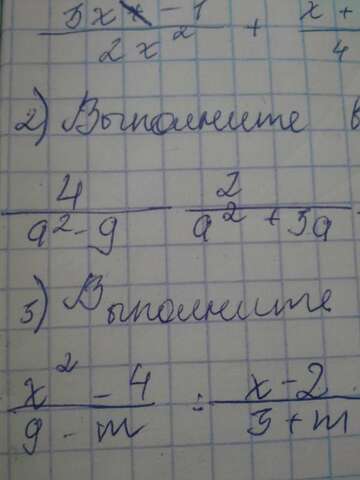 5x - 1 / 2x² + x + / 4
2) Выполните в
4 / a² - 9 - 2 / a² + 3a
3) Выполните
x² - 4 / 9 - m : x - 2 / 3 + m